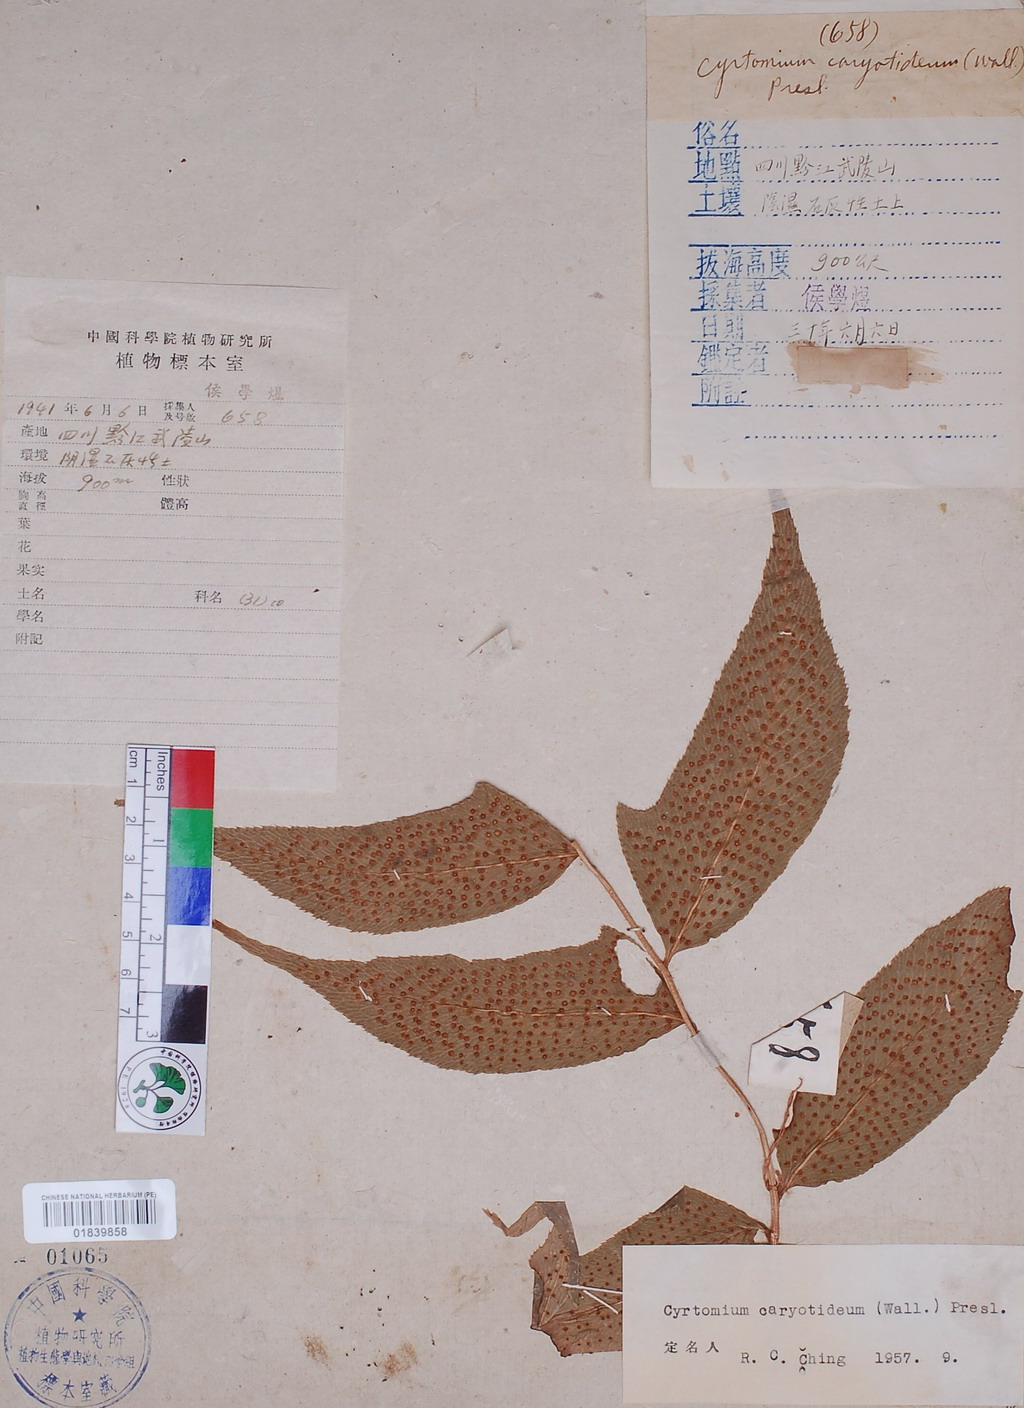 (658)
Cyrtomium caryotideum (Wall.)
Presl.
俗名
地點 四川黔江武陵山
土壤 陰濕石灰性土上
拔海高度 900公尺
採集者 侯學煜
日期 三十年六月六日
鑑定者
附註
中國科學院植物研究所
植物標本室
侯學煜
1941年6月6日 採集人及号数 658
產地 四川黔江武陵山
環境 阴濕石灰性土
海拔 900m 性狀
胸高直徑 體高
葉
花
果实
土名 科名
學名
附記
cm 1 2 3 4 5 6 7
Inches 1 2 3
58
CHINESE NATIONAL HERBARIUM (PE)
01839858
01065
中國科學院
植物研究所
標本室藏
Cyrtomium caryotideum (Wall.) Presl.
定名人 R. C. Ching 1957. 9.